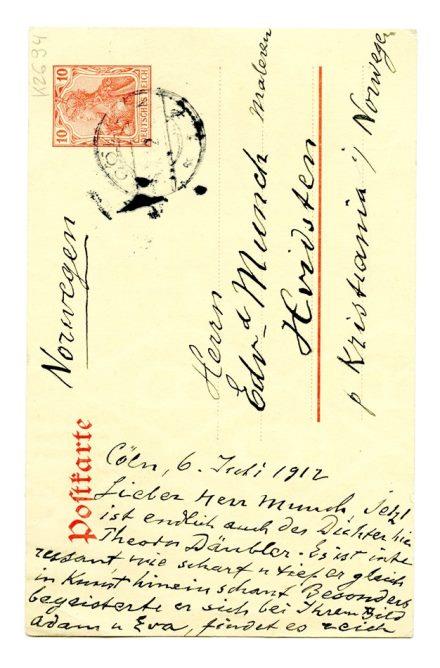 K2694
10 10
DEUTSCHES REICH
CÖLN
Postkarte
Herrn
Edvard Munch Maleren
Hvidsten
p Kristiania i/ Norwegen
Norwegen
Cöln, 6. Juli 1912
Lieber Herr Munch, Jetzt
ist endlich auch der Dichter hier
Theodor Däubler. Es ist inte
ressant, wie scharf u tief er gleich
in Kunst hineinschaut Besonders
begeisterte er sich bei Ihrem Bild
Adam u Eva, findet es reich